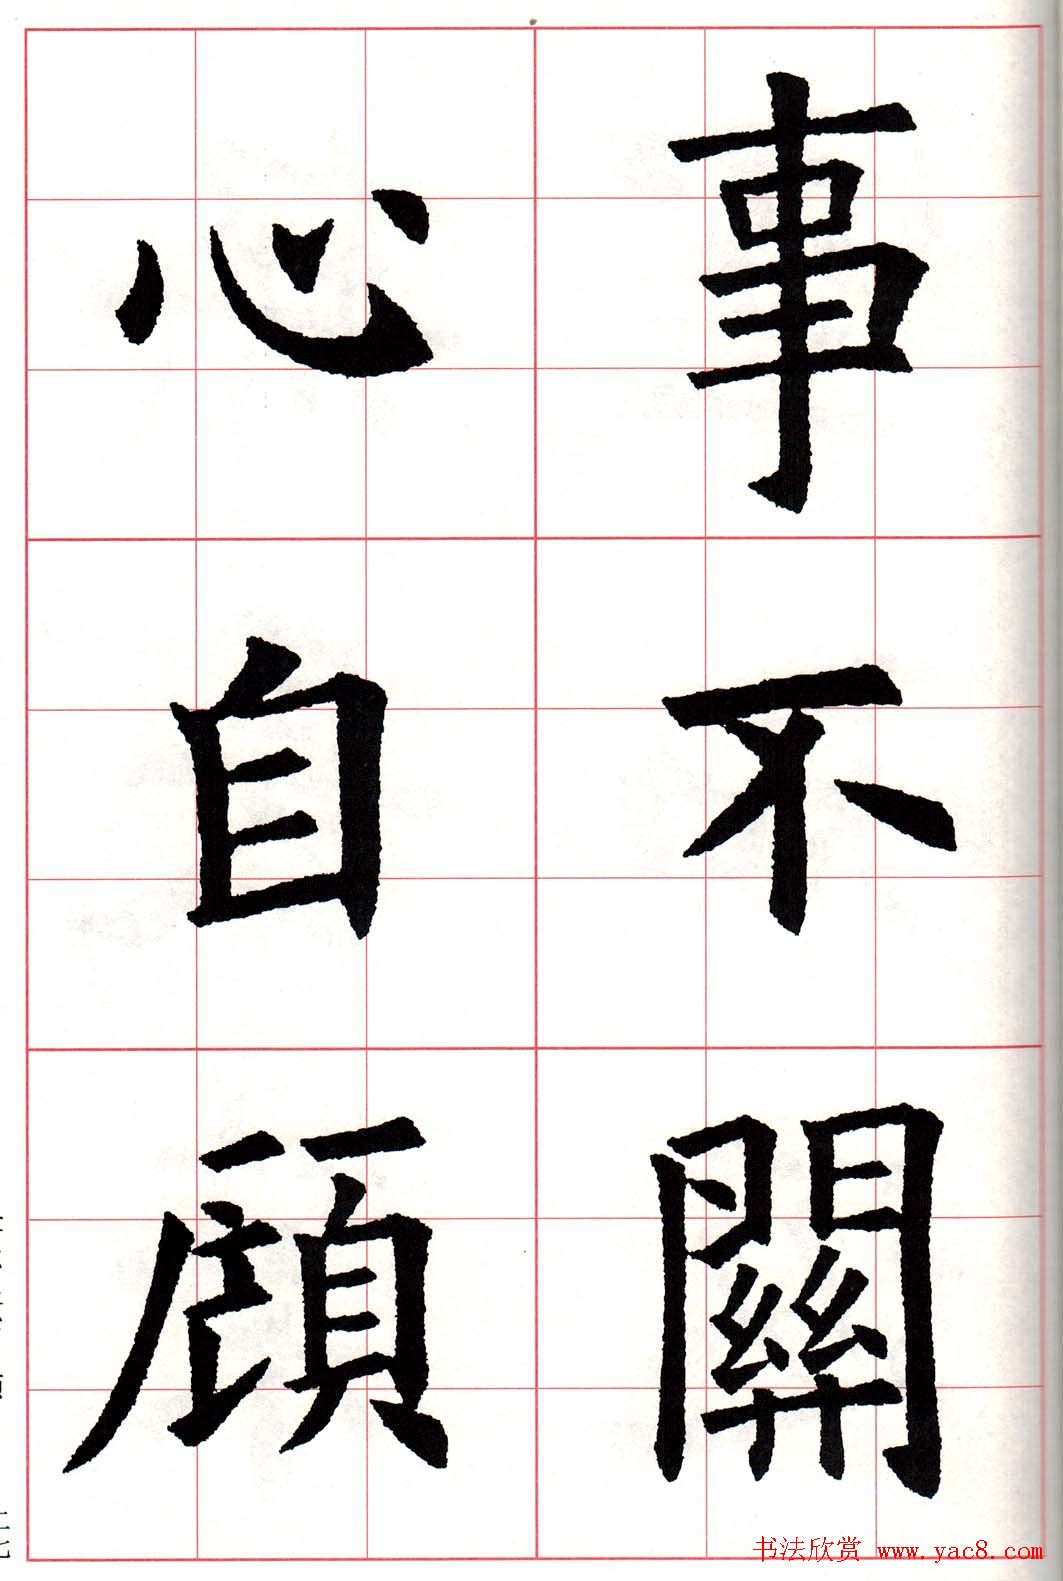 事不關
心自顧
书法欣赏 www.yac8.com